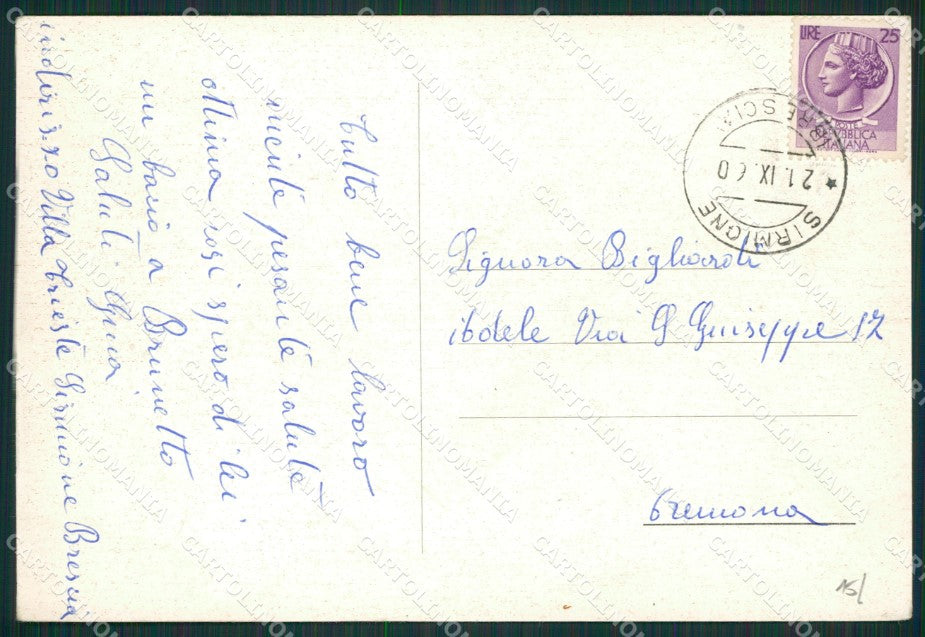 Tutto bene lavoro
niente pesante salute
ottima così spero di lei
un bacio a Brunetto
Saluti Gina
indirizzo Villa Trieste Sirmione Brescia
LIRE 25
POSTE
REPUBBLICA
ITALIANA
SIRMIONE
21.IX.60
BRESCIA
Signora Bigliardi
Adele Via G Guiseppe 12
Cremona
15/
CARTOLINOMANIA